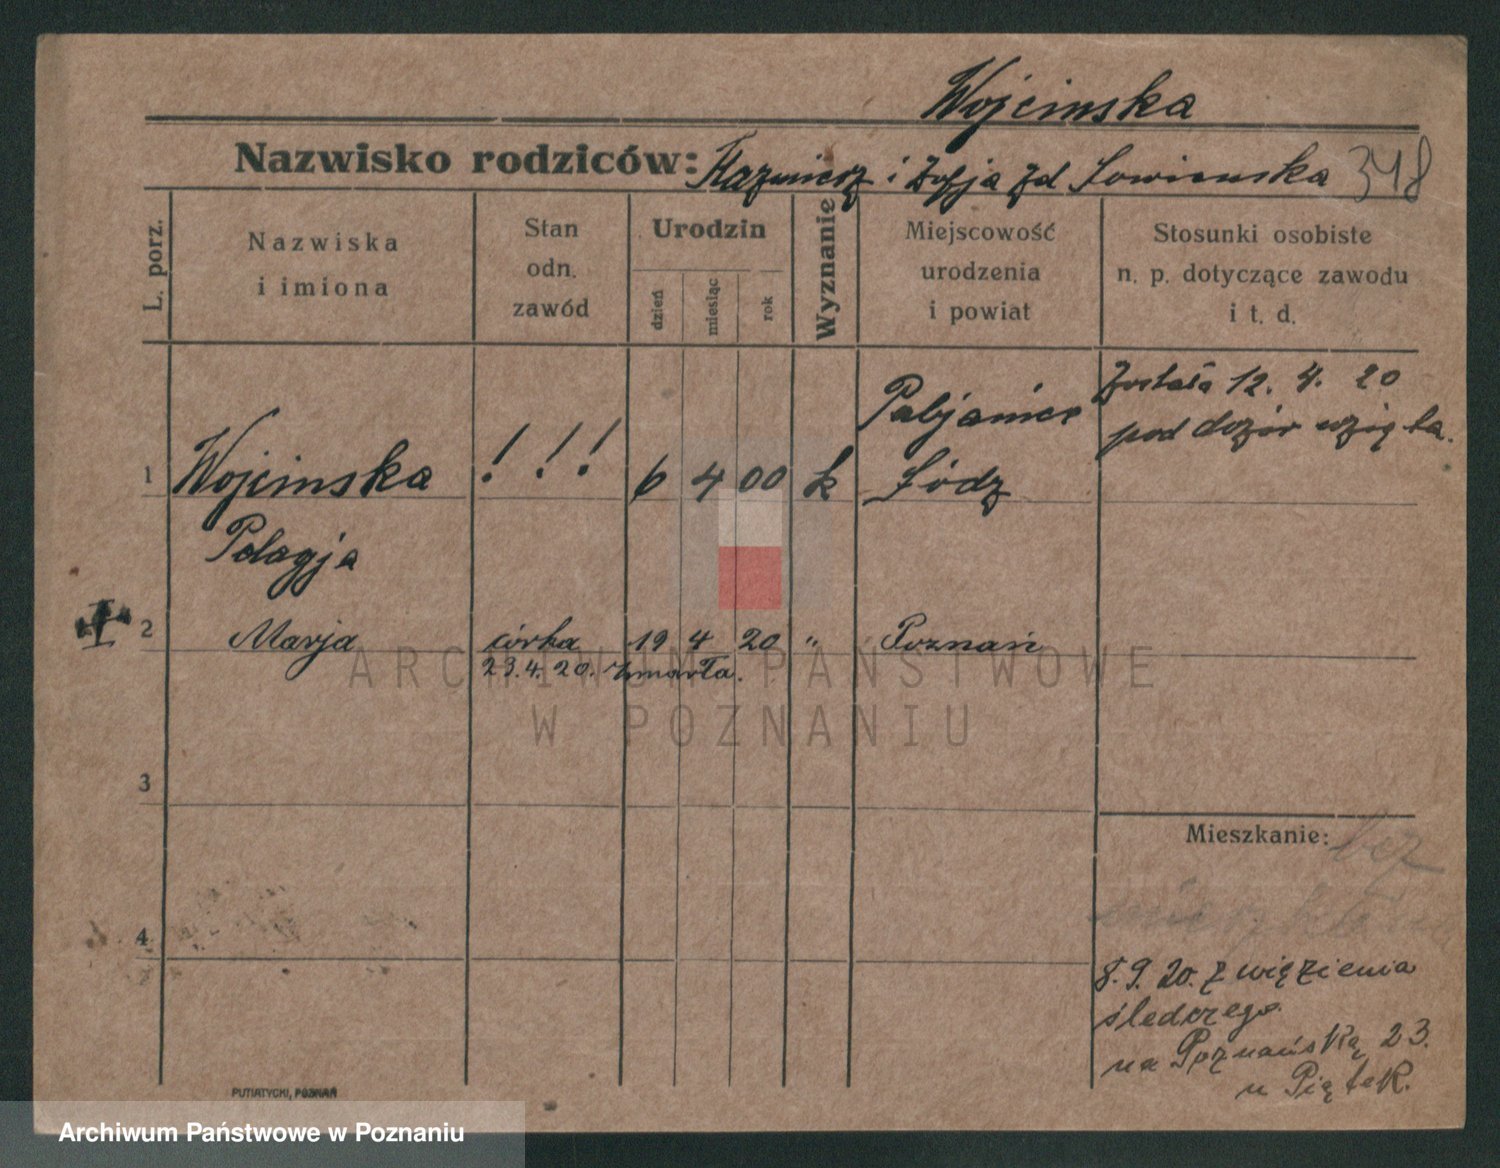 Wojcinska
Nazwisko rodziców: Kazmierz i Zofja zd Sowinska 348
L. porz.
Nazwiska
i imiona
Stan
odn.
zawód
Urodzin
dzień
miesiąc
rok
Wyznanie
Miejscowość
urodzenia
i powiat
Stosunki osobiste
n. p. dotyczące zawodu
i t. d.
1 Wojcinska ! ! ! 6 4 00 k Pabjanice
Łódz
Została 12. 4. 20
pod dozór wzięta.
Pelagja
2 Marja córka 19 4 20 " Poznań
23. 4. 20. zmarła.
3
4
Mieszkanie: bez
8. 9. 20. z więzienia
śledczego.
na Poznańską 23.
u Piątek.
PUTIATYCKI, POZNAŃ
ARCHIWUM PAŃSTWOWE
W POZNANIU
Archiwum Państwowe w Poznaniu